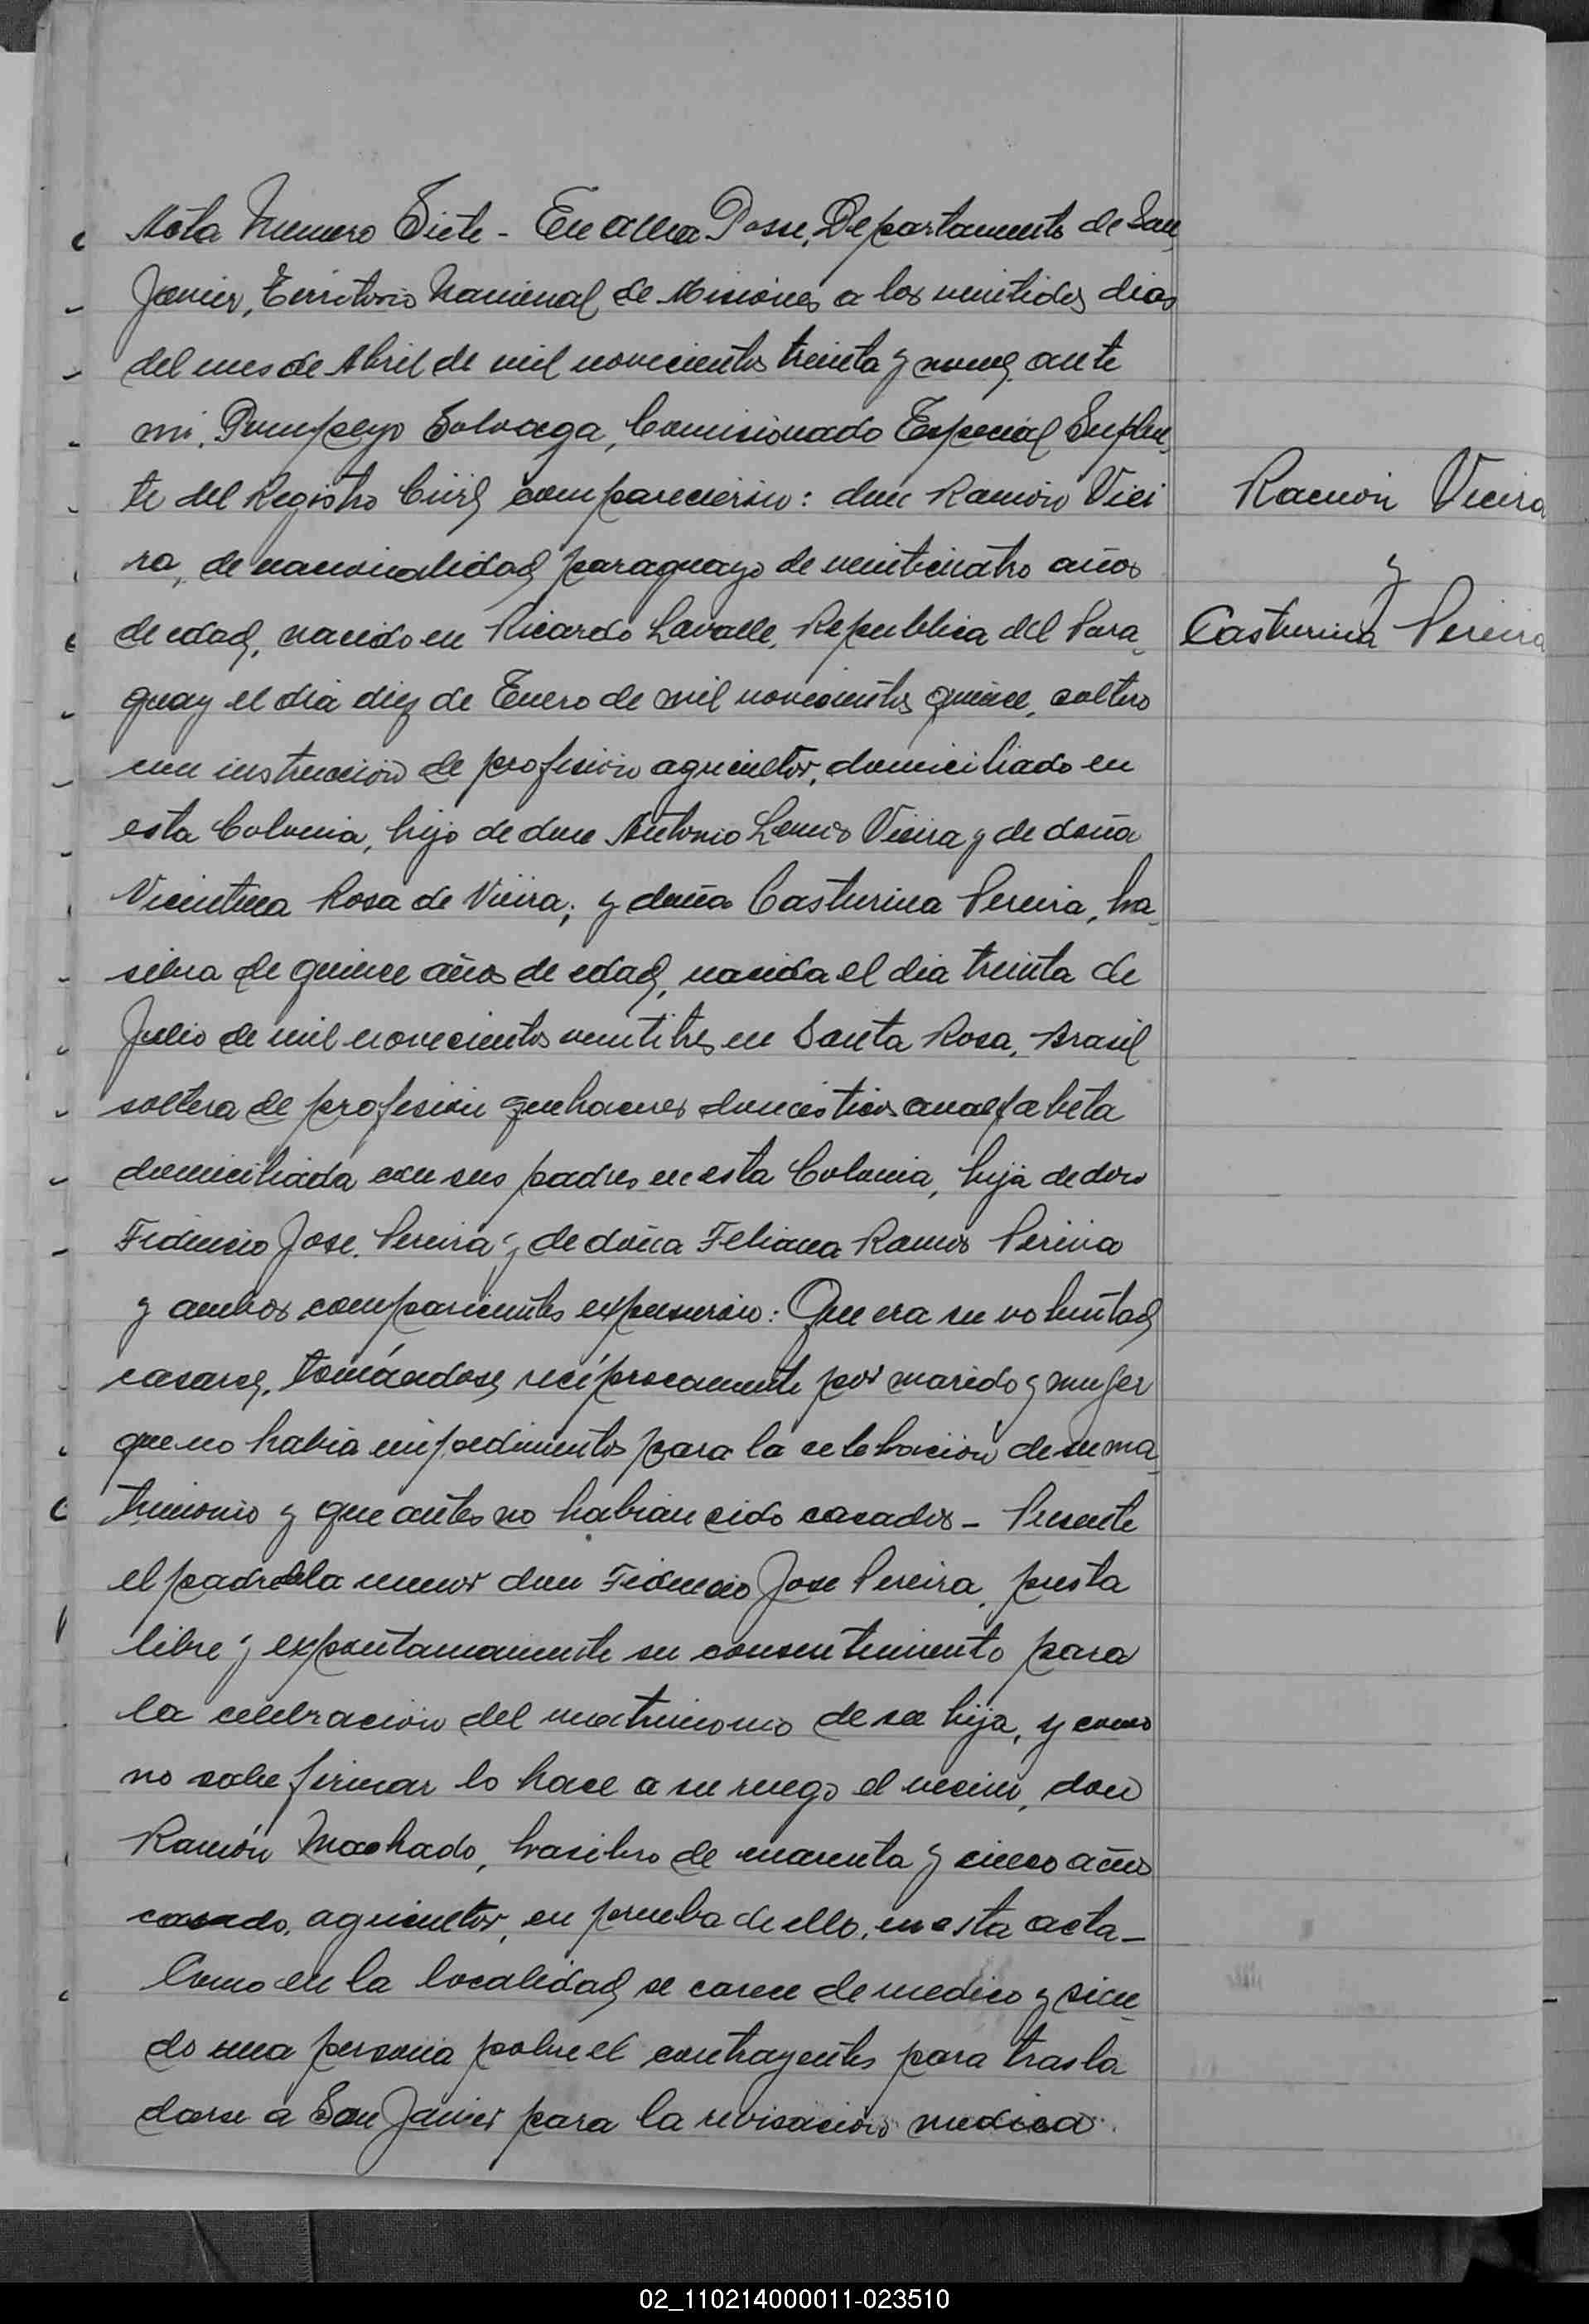 Acta Numero Siete - En Alba Posse, Departamento de San
Javier, Territorio Nacional de Misiones a los veintidos dias
del mes de Abril de mil novecientos treinta y nueve, ante
mi, Pompeyo Solvaga, Comisionado Especial Suplen-
te del Registro Civil comparecieron: don Ramón Viei
Ramon Vieira
ra, de nacionalidad paraguayo de veinticuatro años
y
de edad, nacido en Ricardo Lavalle, Republica del Para-
Casturina Pereira
guay el dia diez de Enero de mil novecientos quince, soltero
con instrucción de profesion agricultor, domiciliado en
esta Colonia, hijo de don Antonio Lemos Vieira y de doña
Vicentina Rosa de Vieira; y doña Casturina Pereira, bra-
silera de quince años de edad, nacida el dia treinta de
Julio de mil novecientos veintitres en Santa Rosa, Brasil
soltera de profesion quehaceres domesticos analfabeta
domiciliada con sus padres en esta Colonia, hija de don
Fidencio Jose Pereira y de doña Feliciana Ramos Pereira
y ambos comparecientes expusieron: Que era su voluntad
casarse, tomándose recíprocamente por marido y mujer
que no habia impedimentos para la celebración de su ma-
trimonio y que antes no habian sido casados - Presente
el padre de la menor don Fidencio Jose Pereira, presta
libre y expontaneamente su consentimiento para
la celebración del matrimonio de su hija, y como
no sabe firmar lo hace a su ruego el vecino, don
Ramón Machado, brasilero de cuarenta y cinco años
casado, agricultor, en prueba de ello, en esta acta -
Como en la localidad se carece de medico y sien-
do una persona pobre el contrayentes para trasla
darse a San Javier para la revisacion medica.
02_110214000011-023510